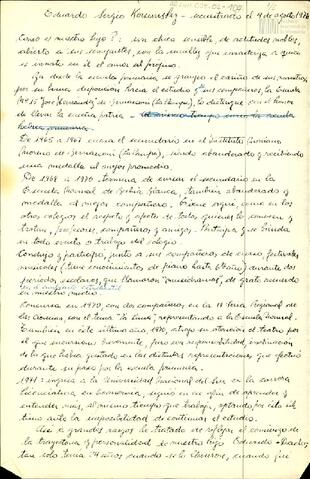 Eduardo Sergio Korsunsky - secuestrado el 4 de agosto 1976
Como es nuestro hijo?: un chico sencillo, de actitudes nobles,
abierto a sus semejantes, con la sencillez que caracteriza a quien
es innato en él el amor al prójimo.
Ya desde la escuela primaria se granjeó el cariño de sus maestros
por su buena disposición hacia el estudio y sus compañeros, la Escuela
Nº 15 José Hernández de Bernasconi (La Pampa), lo distingue con el honor
de llevar la enseña patria -
De 1965 a 1967 cursa el secundario en el Instituto
de Bernasconi (La Pampa), siendo abanderado y recibiendo
una medalla al mejor promedio.
De 1968 a 1970, termina de cursar el secundario en la
Escuela Normal de Bahía Blanca, también abanderado y
medalla al mejor compañero. Tiene aquí, como en los
otros colegios el respeto y afecto de todos, quienes lo conocen y
tratan, profesores, compañeros y amigos. Participa y brinda
en todo evento o trabajo del colegio.
Condujo y participó, junto a sus compañeros de curso, festivales
musicales (tiene conocimientos de piano hasta 6º año) durante dos
períodos escolares, que llamaron "musidramas", de grato recuerdo
en el ambiente estudiantil
Concursa en 1970, con dos compañeros, en la Feria Regional de
las Ciencias, con el tema "La Luna", representando a la Escuela Normal.
También en este último año, 1970, atrajo su atención el teatro por
el que incursionó brevemente, para ser responsabilidad, motivación
de lo que había gustado en las distintas representaciones que efectuó
durante su paso por la escuela primaria.
1971: ingresa a la Universidad Nacional del Sur en la carrera
Licenciatura en Economía, siguió en su afán de aprender y
entender más, al mismo tiempo que trabajó, optando por esto último
ante la imposibilidad de continuar el estudio.
Así a grandes rasgos he tratado de reflejar el camino de
la trayectoria y personalidad de nuestro hijo Eduardo
tan solo tenía 24 años cuando se lo llevaron, cuando que